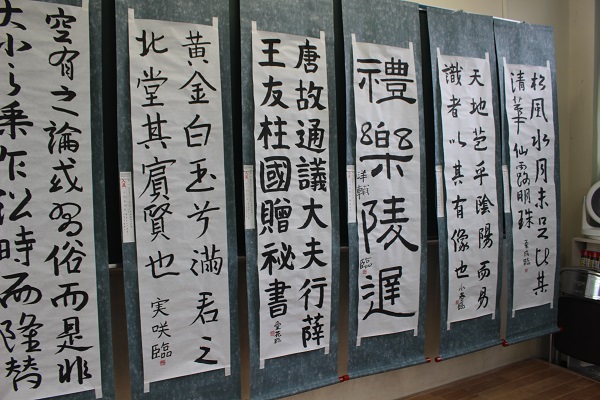 松風水月未足比其
清華仙露明珠
天地苞乎陰陽而易
識者以其有像也
禮樂陵遲
臨
唐故通議大夫行薛
王友柱國贈祕書
黄金白玉兮滿君之
北堂其賓賢也
実咲臨
空有之論或習俗而是非
大小之乗乍沿時而隆替